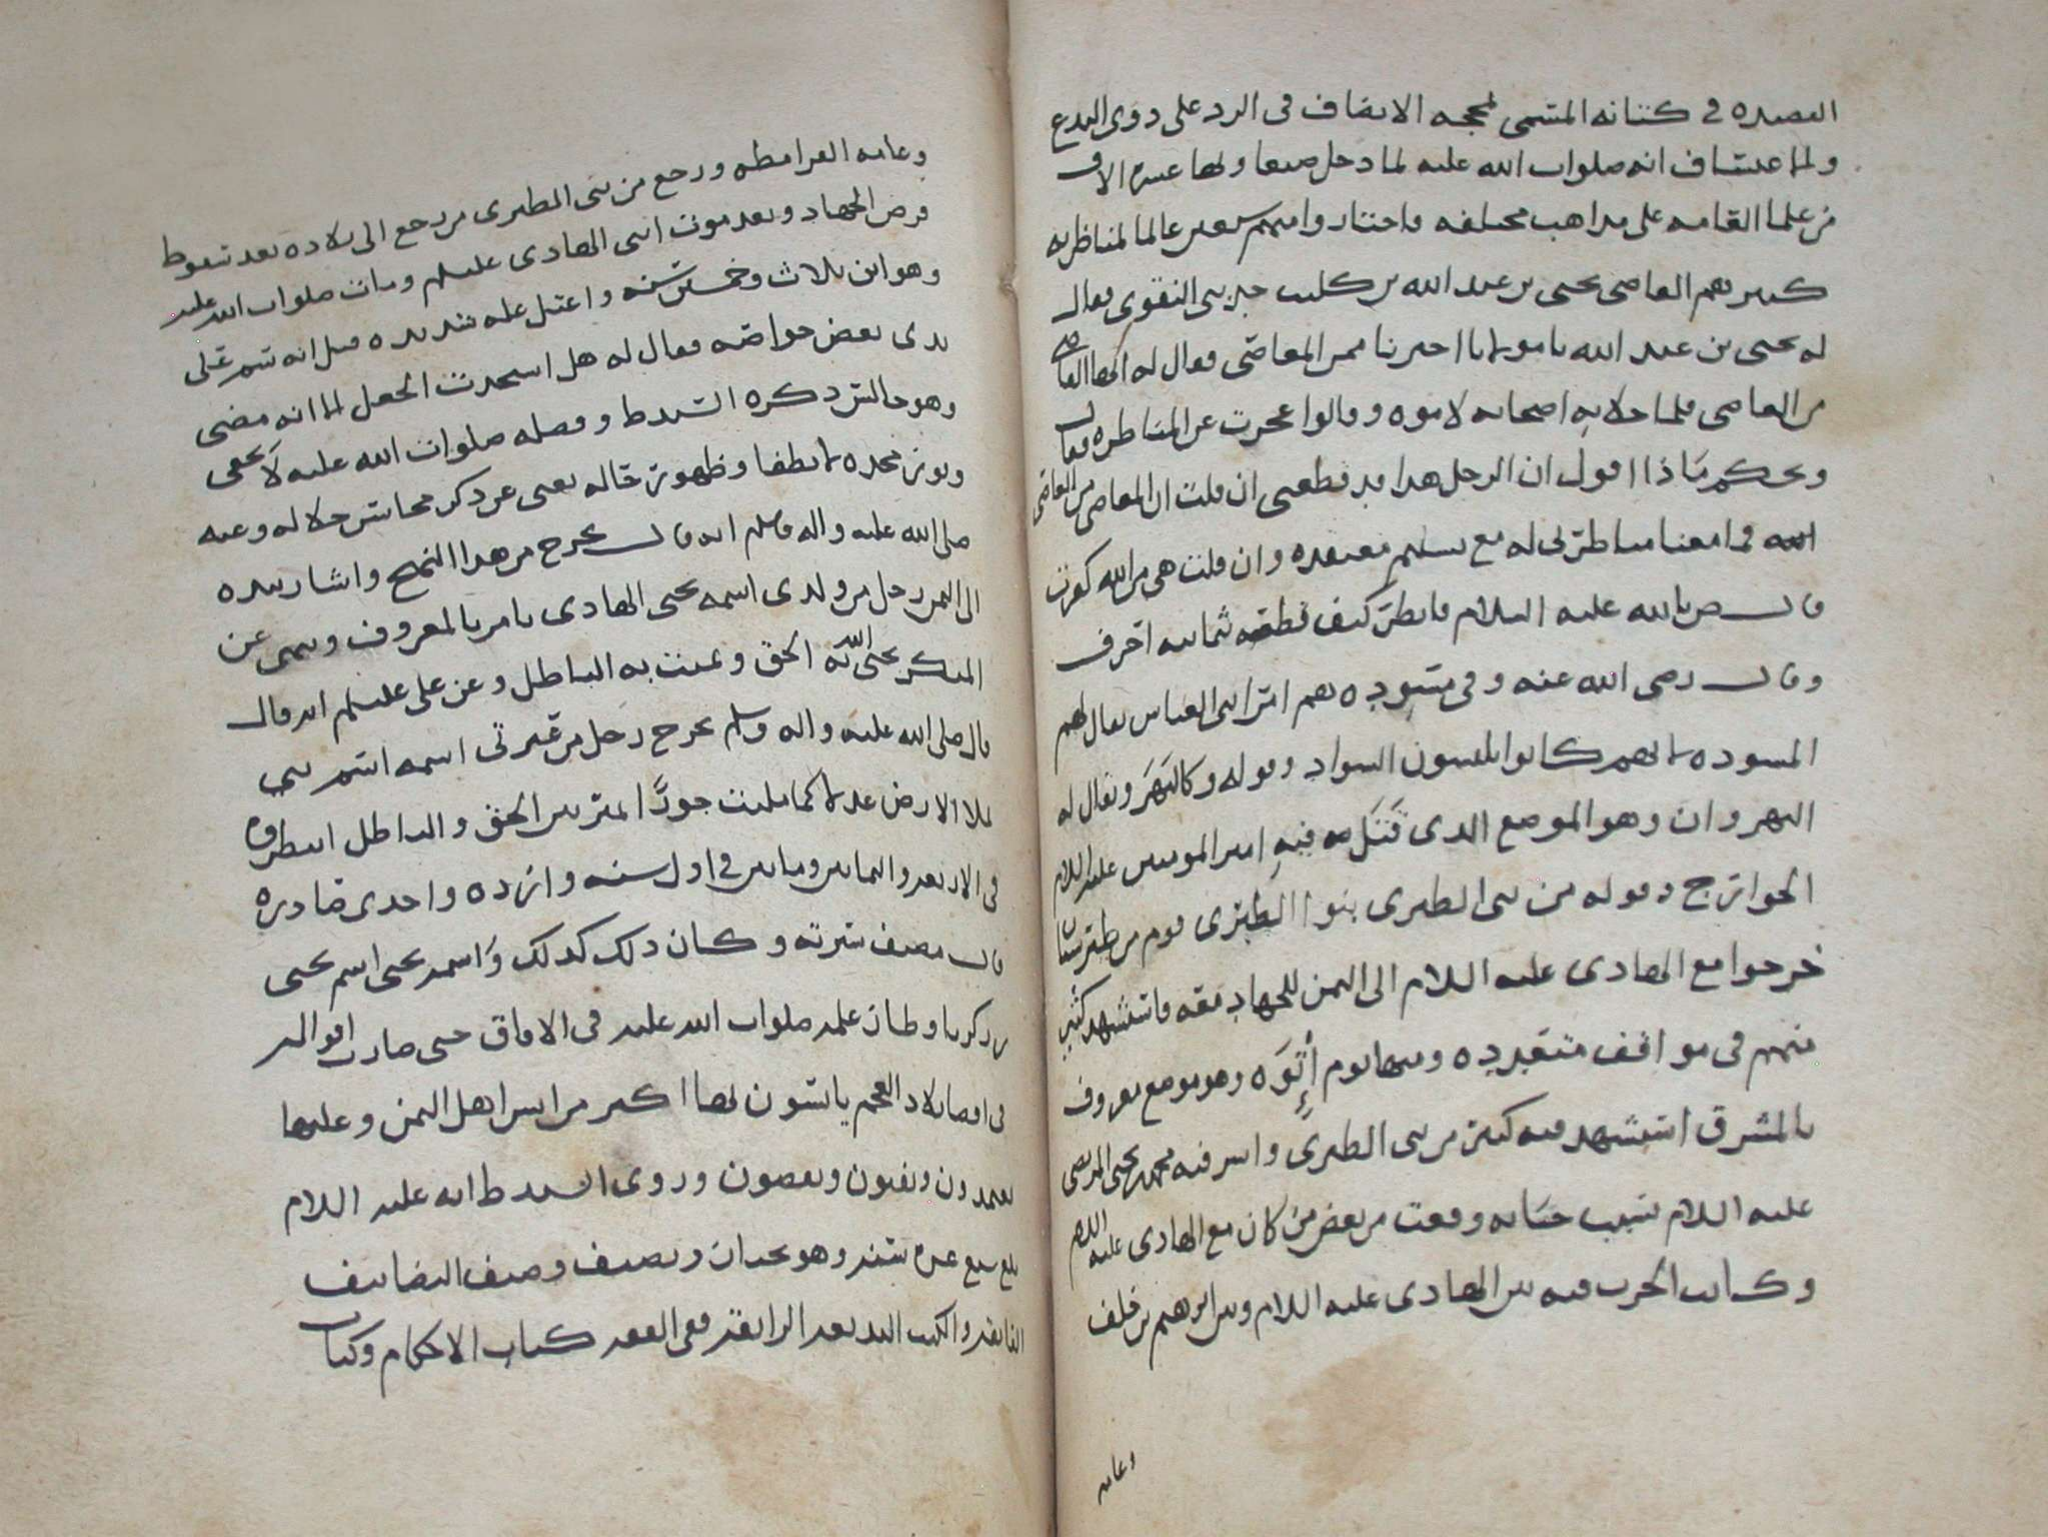 القصيده في كتابه المسمى لمحجه الانصاف في الرد على ذوى البدع
ولما عتساف انه صلوات الله عليه لما دخل صنعا ولها عشره الاف
من علما العامه على مذاهب مختلفه فاختاروا منهم سبعين عالما لمناظرته
كبيرهم القاضى يحيى بن عبد الله بن كليب النقوى فقال
له يحيى بن عبد الله يا مولانا اخبرنا ممن المعاصى فقال له الهادى
من العاصى فلما خلا به اصحابه لاموه وقالوا عجزت عن المناظره فقال
ويحكم ماذا اقول ان الرجل هذا قد قطعنى ان قلت ان المعاصى من العاصى
فما معنا مناظرتى له مع تسليم معتقده وان قلت هى من الله كفرت
قال ص بالله عليه السلام فانظر كيف قطعه ثمانيه احرف
وقال رضى الله عنه وفى مسوده هم امرا بنى العباس يقال لهم
المسوده لانهم كانوا يلبسون السواد وقوله وكالنهر ويقال له
النهروان وهو الموضع الذى قتل فيه امير المومنين عليه السلام
الخوارج وقوله من بنى الطبرى بنوا الطبرى قوم من طبرستان
خرجوا مع الهادى عليه السلام الى اليمن للجهاد معه فاستشهد كثير
منهم فى مواقف متعدده ومنها يوم إتوه وهو موضع معروف
بالمشرق استشهد فيه كثير من بنى الطبرى واسر فيه محمد بن يحيى المرتضى
عليه السلام بسبب خيانه وقعت من بعض من كان مع الهادى عليه السلم
وكانت الحرب فيه بين الهادى عليه السلام وبين ابرهيم بن خلف
وعامه
وعامه القرامطه ورجع من بنى الطبرى من رجع الى بلاده بعد سقوط
فرض الجهاد وبعد موت ابنى الهادى عليهم ومات صلوات الله عليه
وهو ابن ثلاث وخمسين سنه واعتل عله شديده قيل انه سم على
يدى بعض خواصه فقال له هل استجدت الجعل لما انه مضى
وهو جالس ذكره السيد ط وفضله صلوات الله عليه لا يخفى
ونور مجده لا يطفا وظهور حاله يغنى عن ذكر محاسن خلاله وعنه
صلى الله عليه واله وسلم انه قال يخرج من هذا النهج واشار بيده
الى اليمن رجل من ولدى اسمه يحيى الهادى يامر بالمعروف وينهى عن
المنكر يحيى الله به الحق ويميت به الباطل وعن على عليلم انه قال
قال صلى الله عليه واله وسلم يخرج رجل من عترتى اسمه اسم نبى
يملا الارض عدلا كما ملئت جورا يميز بين الحق والباطل انتظروه
فى الاربعه والثمانين ومايتين فى اول سنه وارده واحدى صادره
قال مصنف سيرته وكان ذلك كذلك واسمه يحيى اسم يحيى
بن زكريا وطار علمه صلوات الله عليه فى الافاق حتى صارت اقواله
فى اقصا بلاد العجم ياتسون لها اكثر من اسرا هل اليمن وعليها
يعتمدون ويفتون ويقضون وروى السيد ط انه عليه السلام
بلغ سبع عشره سنه وهو بحيث ان ويصنف وصنف التصانيف
الفايقه والكتب البديعه الرايقه ففى الفقه كتاب الاحكام وكتاب